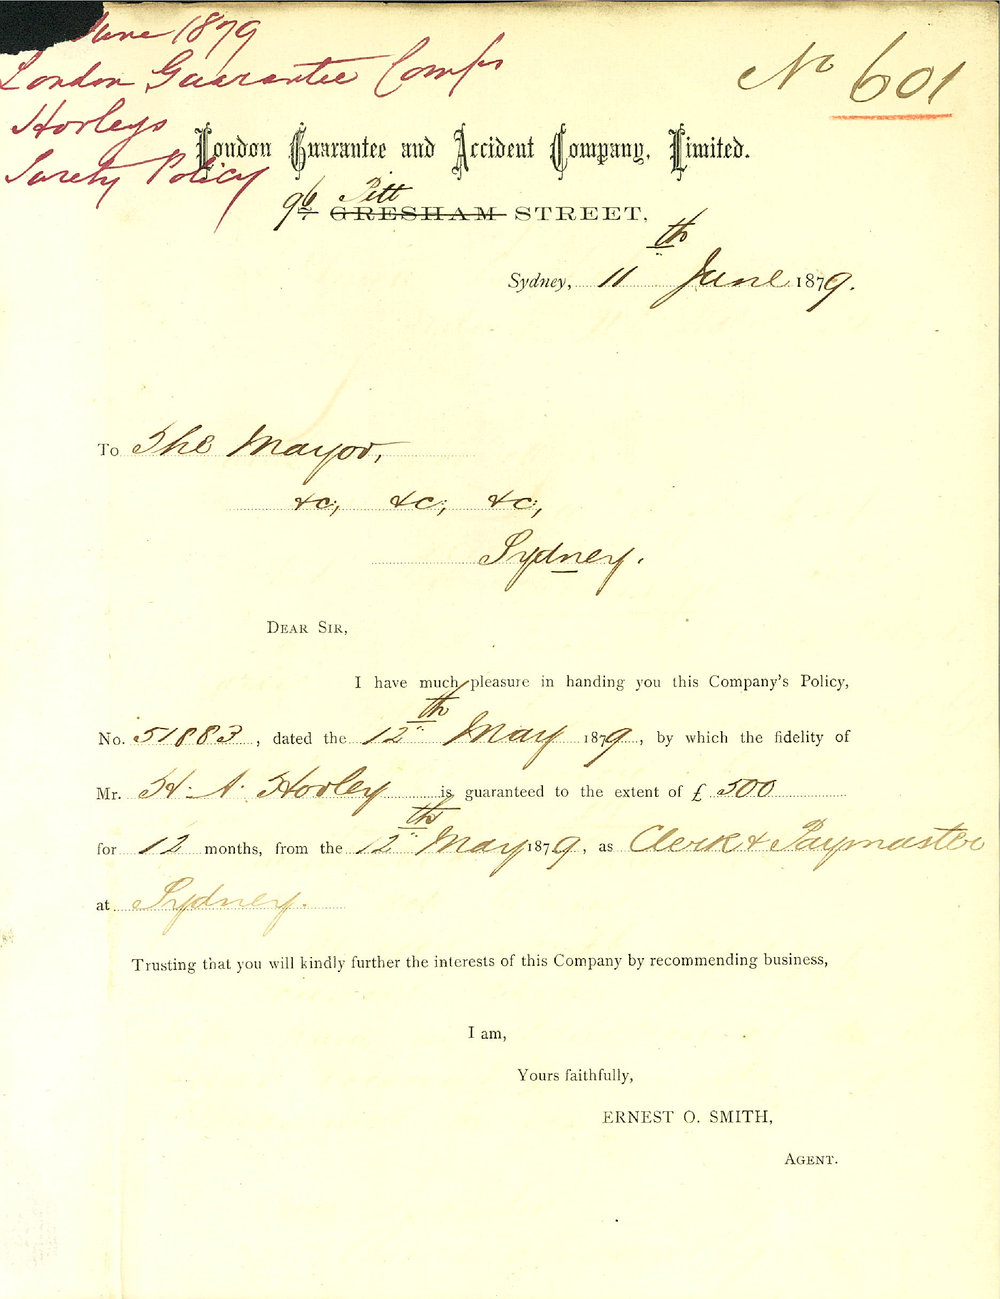 June 1879
London Guarantee Compy
Horleys
Surety Policy
No 601
London Guarantee and Accident Company, Limited.
96 Pitt
GRESHAM STREET,
Sydney, 11th June 1879.
To The Mayor,
&c, &c, &c,
Sydney.
DEAR SIR,
I have much pleasure in handing you this Company's Policy,
No. 51883, dated the 12th May 1879, by which the fidelity of
Mr. H. A. Horley is guaranteed to the extent of £ 500
for 12 months, from the 12th May 1879, as Clerk & Paymaster
at Sydney.
Trusting that you will kindly further the interests of this Company by recommending business,
I am,
Yours faithfully,
ERNEST O. SMITH,
AGENT.